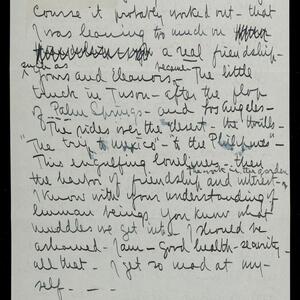 course it probably worked out - that
I was leaning too much in
a real friendship -
such as
yours and Eleanors - because The little
truck in Tuson - after the plop
of Palm Springs - and Los Angeles -
The rides over the desert - the thrills -
"The trip to Mexico" - "to the Philipines" -
This engulfing loneliness - then
The work in the garden
the harbor of friendship and interest -
I know with your understanding of
human beings you know what
muddles we get into I should be
ashamed - I am - good health - security -
all that - I get so mad at my-
self - - -